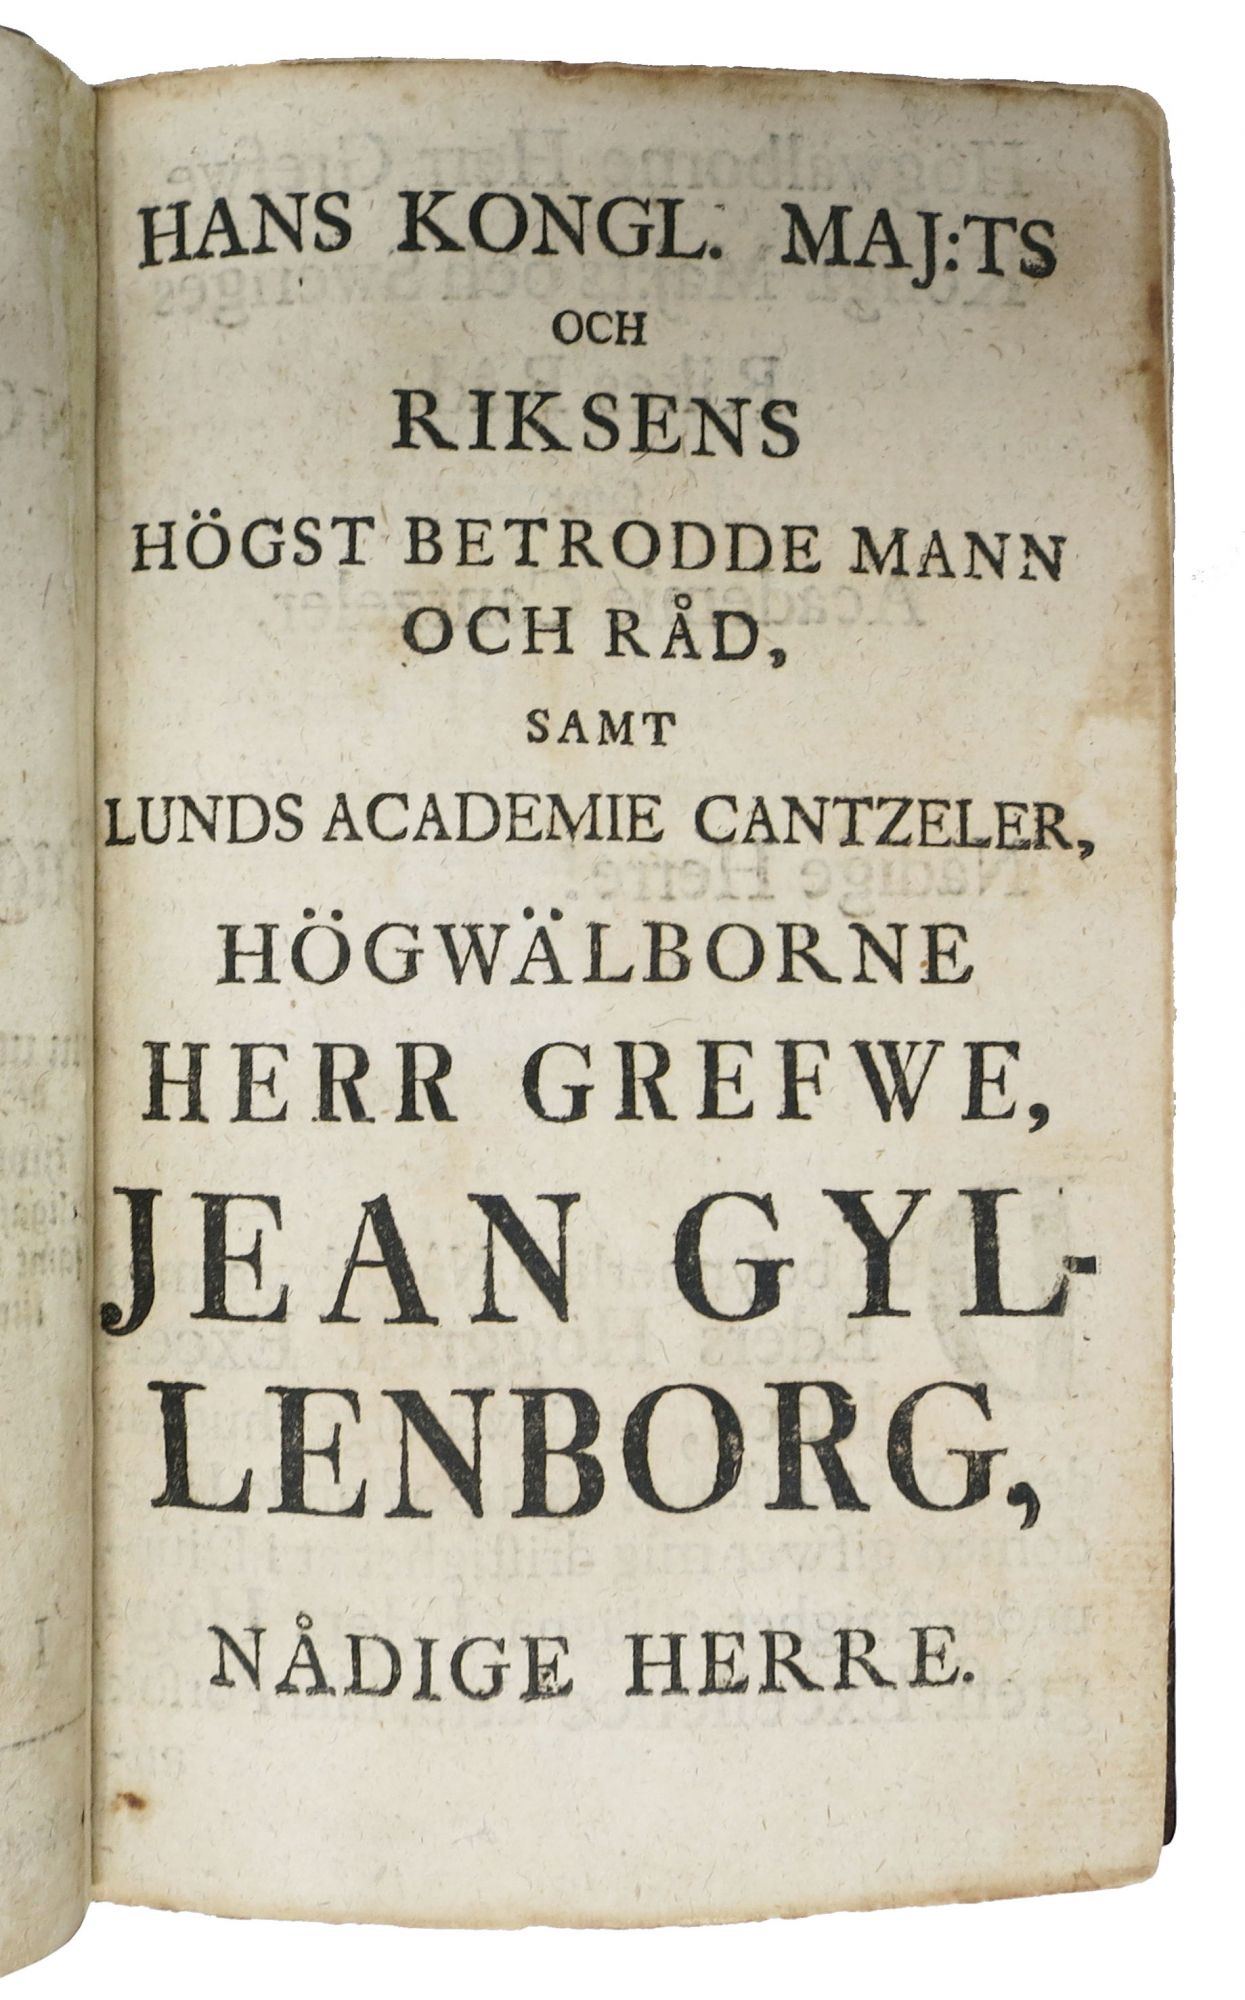 HANS KONGL. MAJ:TS
OCH
RIKSENS
HÖGST BETRODDE MANN
OCH RÅD,
SAMT
LUNDS ACADEMIE CANTZELER,
HÖGWÄLBORNE
HERR GREFWE,
JEAN GYL-
LENBORG,
NÅDIGE HERRE.